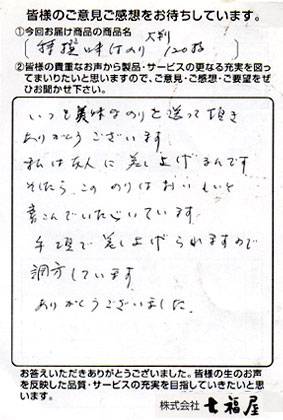 皆様のご意見ご感想をお待ちしています。
①今回お届け商品の商品名
(特撰味はのり 大判 120枚)
②皆様の貴重なお声から製品・サービスの更なる充実を図っ
てまいりたいと思いますので、ご意見・ご感想・ご要望をぜ
ひお聞かせ下さい。
いつも美味なのりを送って頂き
ありがとうございます
私は友人に差し上げるんです
そしたら、こののりはおいしいと
喜こんでいただいています
手頃で差し上げられますので
調方しています
ありがとうございました。
お答えいただきありがとうございました。皆様の生のお声
を反映した品質・サービスの充実を目指していきたいと思
います。
株式会社 七福屋